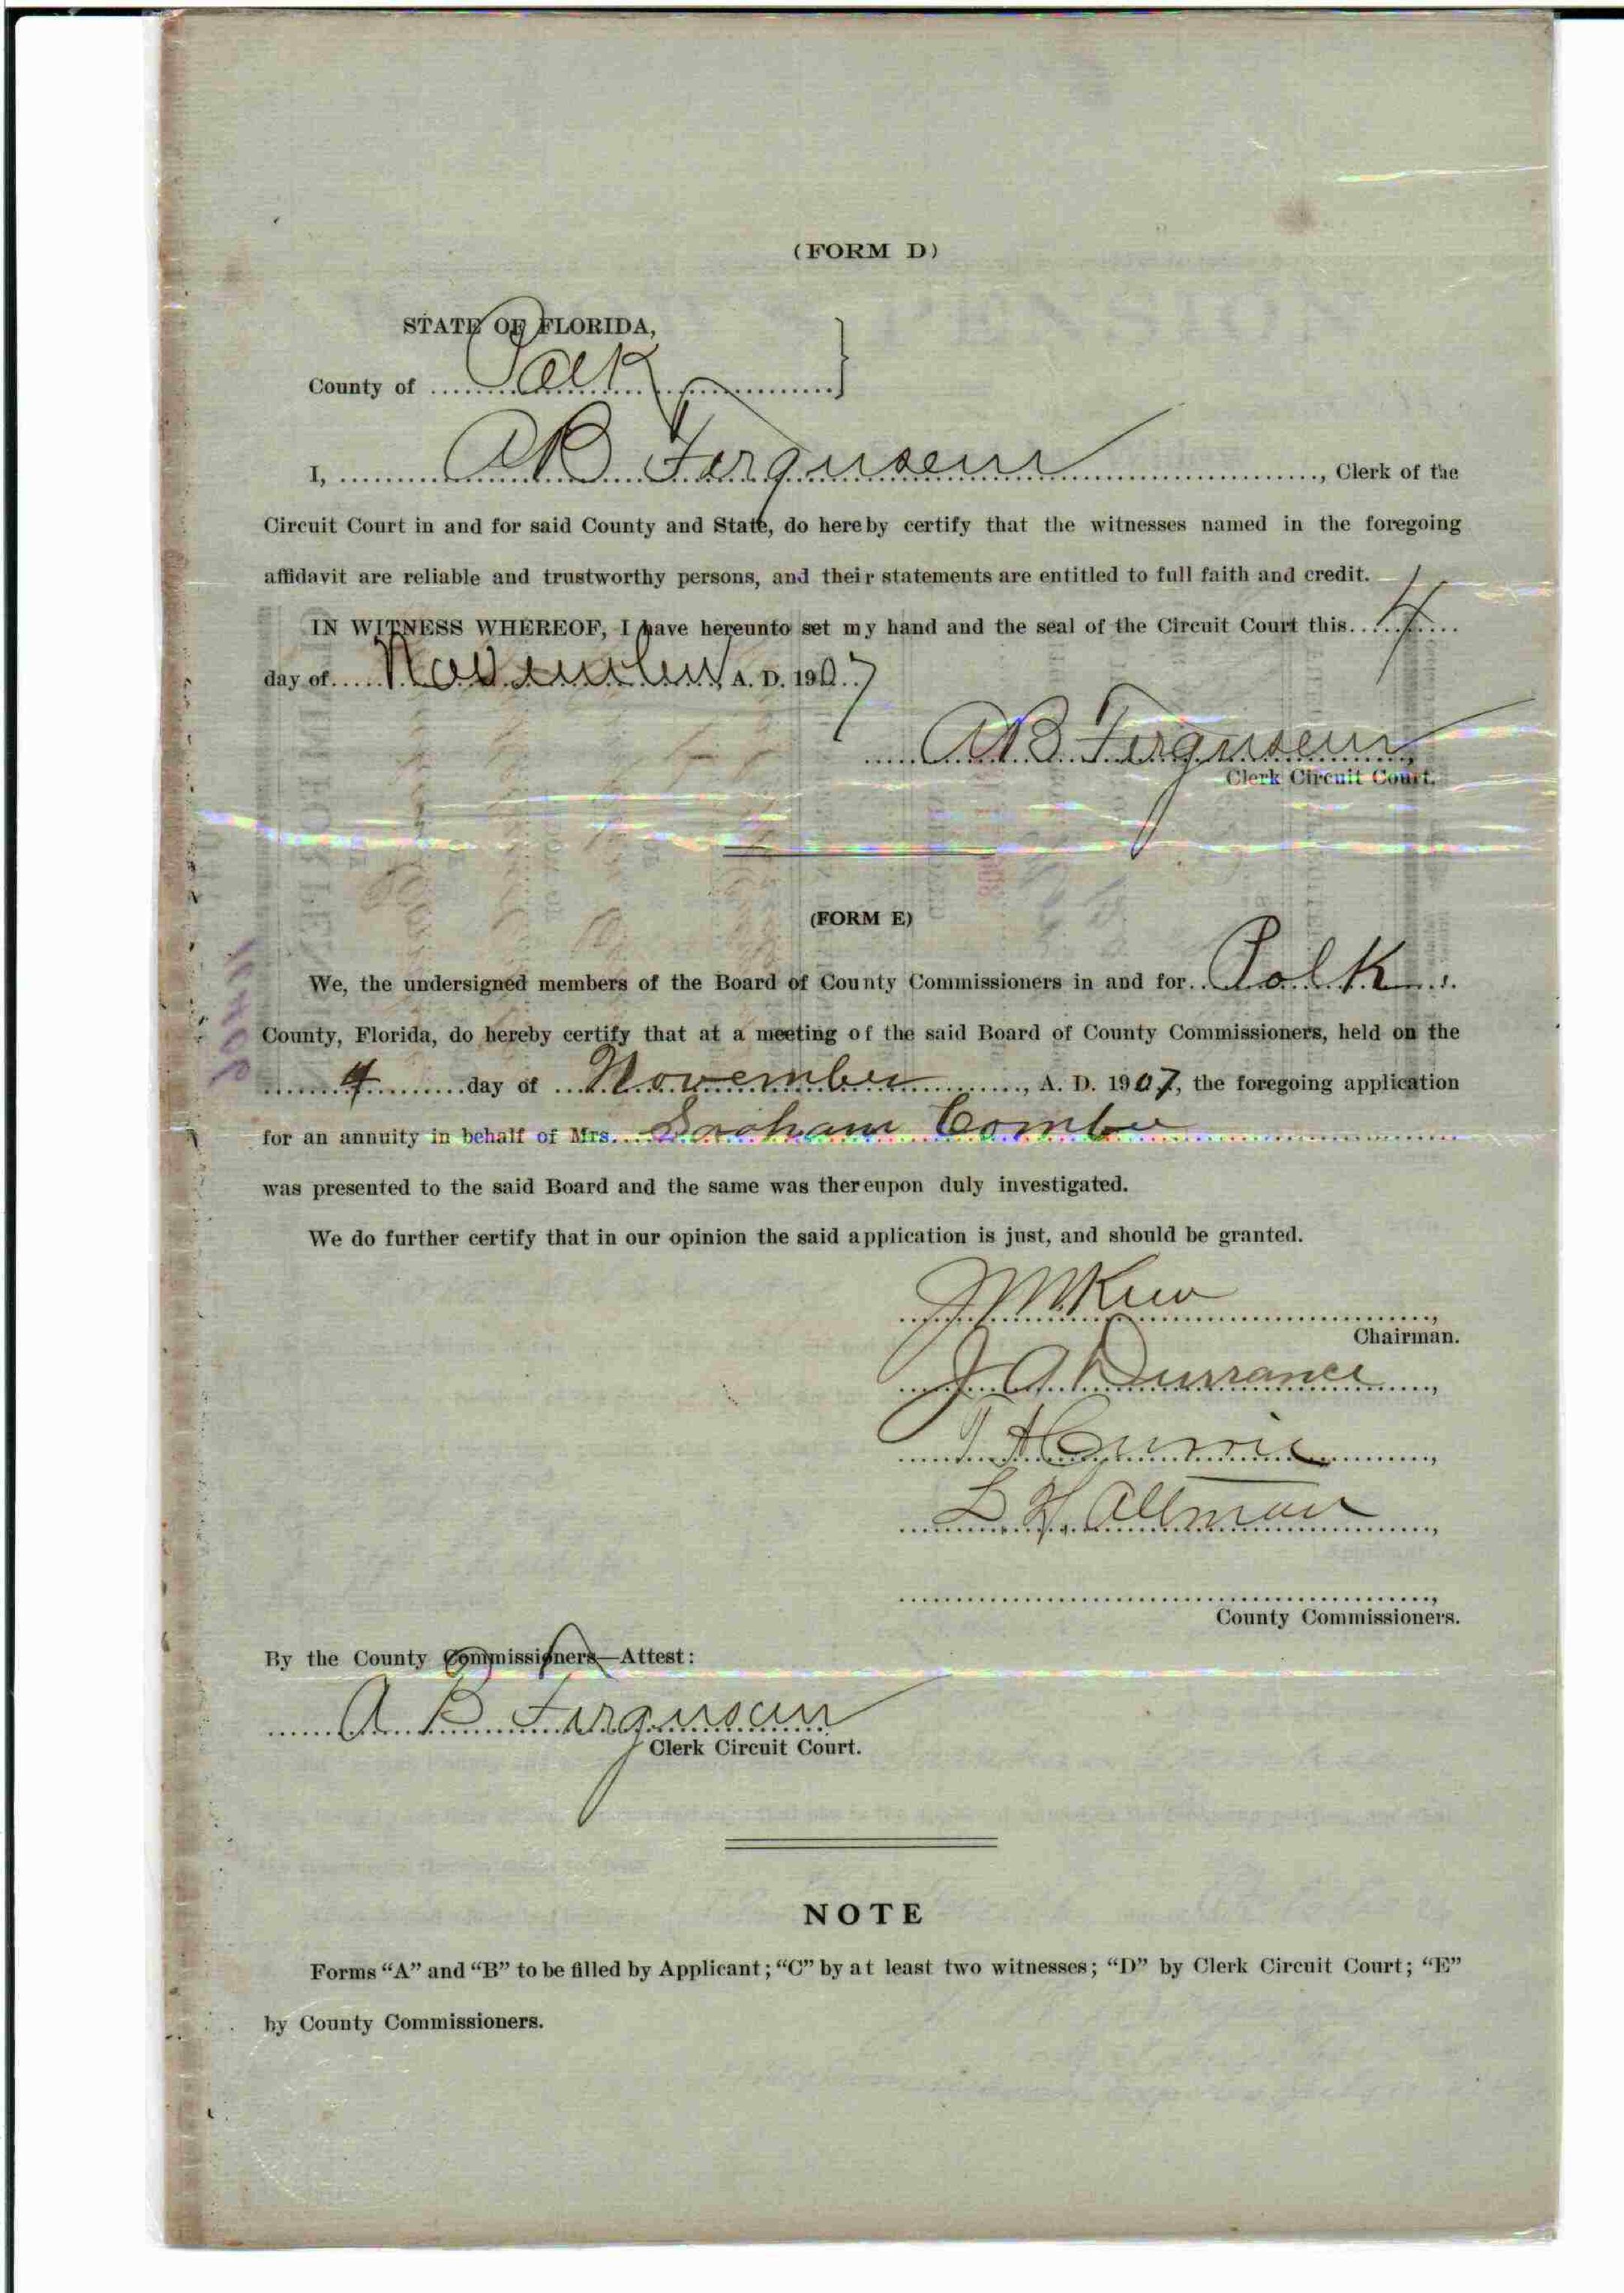 (FORM D)
STATE OF FLORIDA,
County of Polk
I, A B Ferguson, Clerk of the
Circuit Court in and for said County and State, do hereby certify that the witnesses named in the foregoing
affidavit are reliable and trustworthy persons, and their statements are entitled to full faith and credit.
IN WITNESS WHEREOF, I have hereunto set my hand and the seal of the Circuit Court this 4
day of November, A. D. 1907
A B Ferguson
Clerk Circuit Court.
(FORM E)
We, the undersigned members of the Board of County Commissioners in and for Polk
County, Florida, do hereby certify that at a meeting of the said Board of County Commissioners, held on the
4 day of November, A. D. 1907, the foregoing application
for an annuity in behalf of Mrs.
was presented to the said Board and the same was thereupon duly investigated.
We do further certify that in our opinion the said application is just, and should be granted.
J M Keen
Chairman.
J A Durrance
Currie
L H Altman
County Commissioners.
By the County Commissioners—Attest:
A B Ferguson
Clerk Circuit Court.
NOTE
Forms “A” and “B” to be filled by Applicant; “C” by at least two witnesses; “D” by Clerk Circuit Court; “E”
by County Commissioners.